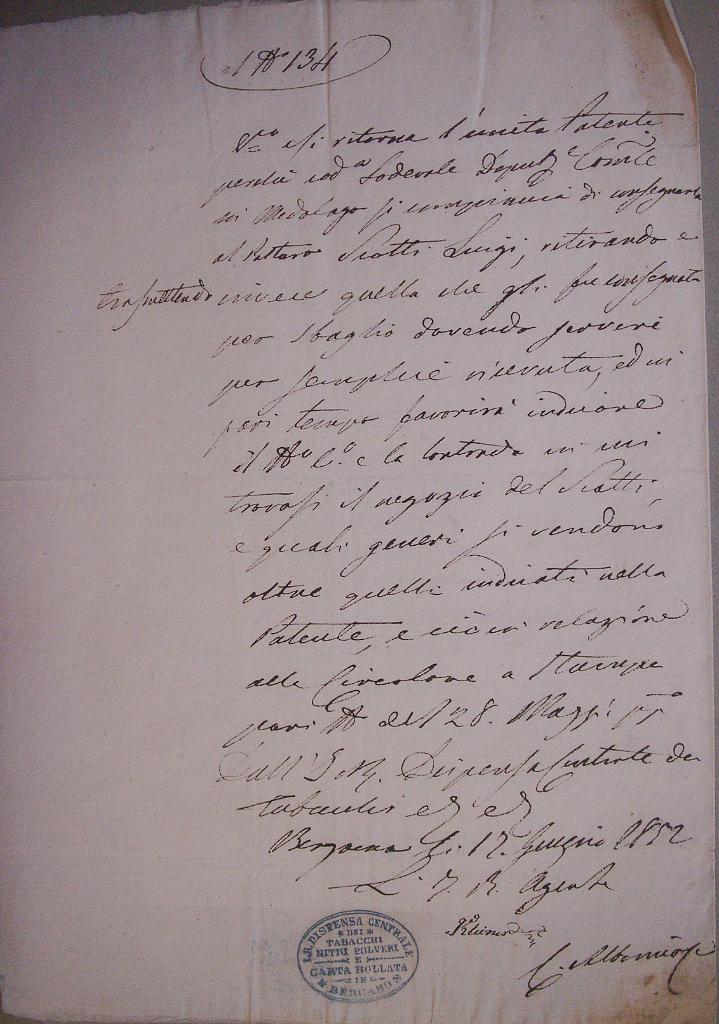 N° 134
si ritorna l'unita Patente
perchè cod.ª Lodevole Deput.e Com.le
in Medolago si compiaccia di consegnarla
al Scotti Luigi, ritirando e
trasmettendo invece quella che gli fu consegnata
per sbaglio dovendo servire
per semplice ricevuta, ed in
pari tempo favorirà indicare
il N° C.° e la Contrada in cui
trovasi il negozio del Scotti,
e quali generi si vendono
oltre quelli indicati nella
Patente, e ciò in relazione
alla Circolare a Stampa
pari N° del 28. Maggio pp°
Dall' I. R. Dispensa Centrale dei
Tabacchi
Bergamo li 17. Giugno 1852
L' I. R. Agente
I.R. DISPENSA CENTRALE
DEI
TABACCHI
NITRI POLVERI
E
CARTA BOLLATA
IN
BERGAMO